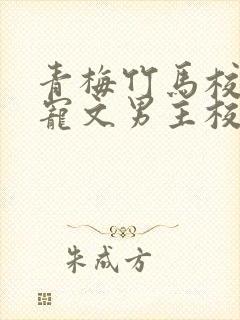 青梅竹馬校
寵文男主校
朱成方